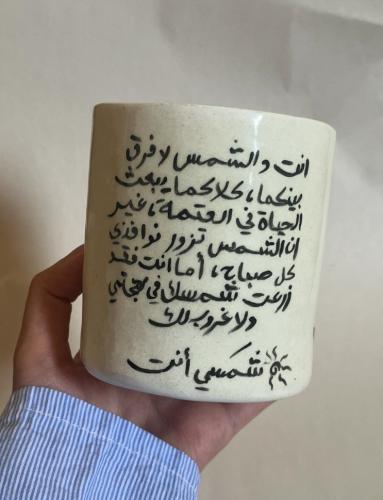 انت والشمس لا فرق
بينكما، كلاكما يبعث
الحياة في العتمة، غير
ان الشمس تزور نوافذي
كل صباح، أما انت فقد
زرعت شمسك في
ولا غروب لك
شمسي أنت